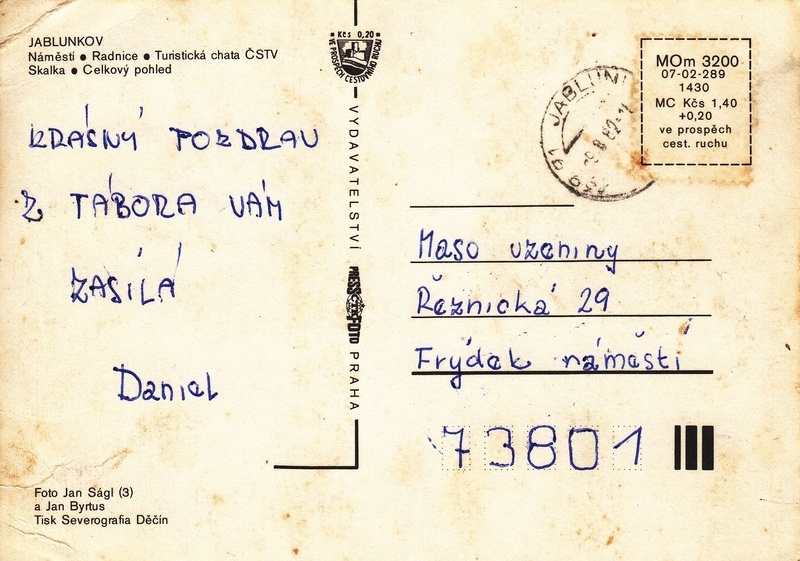 JABLUNKOV
Náměstí ● Radnice ● Turistická chata ČSTV
Skalka ● Celkový pohled
KRÁSNÝ POZDRAV
Z TÁBORA VÁM
ZASÍLÁ
Daniel
Foto Jan Ságl (3)
a Jan Byrtus
Tisk Severografia Děčín
Kčs 0,20
VE PROSPĚCH CESTOVNÍHO RUCHU
VYDAVATELSTVÍ
PRESSFOTO
PRAHA
JABLUN
739 91
MOm 3200
07-02-289
1430
MC Kčs 1,40
+0,20
ve prospěch
cest. ruchu
Maso uzeniny
Řeznická 29
Frýdek náměstí
73801